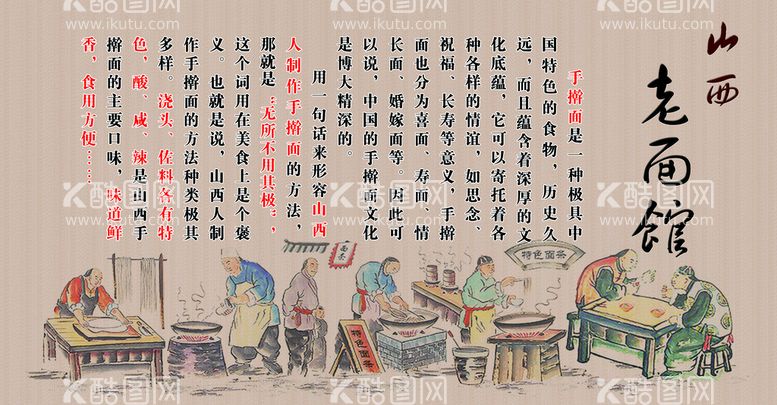 山西
老面馆
手擀面是一种极具中
国特色的食物，历史久
远，而且蕴含着深厚的文
化底蕴，它可以寄托着各
种各样的情谊，如思念、
祝福、长寿等意义，手擀
面也分为喜面、寿面、情
长面、婚嫁面等。因此可
以说，中国的手擀面文化
是博大精深的。
用一句话来形容山西
人制作手擀面的方法，
那就是“无所不用其极”，
这个词用在美食上是个褒
义。也就是说，山西人制
作手擀面的方法种类极其
多样。浇头、佐料各有特
色，酸、咸、辣是山西手
擀面的主要口味，味道鲜
香，食用方便……
面条
特色面条
特色面条
酷图网
www.ikutu.com